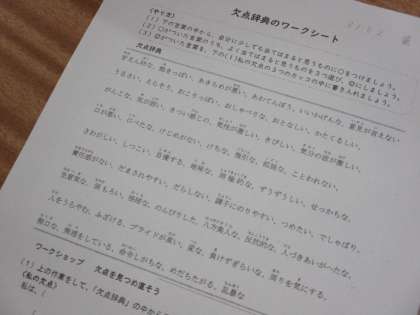 欠点辞典のワークシート
(やり方)
(1)下の言葉の中から、自分に少しでも当てはまると思うものに○をつけましょう。
(2)○がついた言葉のうち、よく当てはまると思うものを3つ選び、◎にしましょう。
(3)◎がついた言葉を、下の(私の欠点)の3つのカッコの中に書き入れましょう。
欠点辞典
飽きっぽい、あきらめが悪い、あわてんぼう、いいかげんな、意見が言えない
うるさい、えらそう、おこりっぽい、おしゃべりな、おとなしい、かたくるしい、
がんこな、気が弱い、きつい感じの、気性が激しい、きびしい、気分の波が激しい、
口が悪い、口べたな、けじめがない、けちな、強引な、孤独な、ことわれない、
さわがしい、しつこい、自慢する、地味な、消極的な、ずうずうしい、せっかちな、
責任感がない、だまされやすい、だらしない、調子にのりやすい、つめたい、でしゃばり、
生意気な、涙もろい、鈍感な、のんびりした、八方美人な、反抗的な、人づきあいがへたな、
人をうらやむ、ふざける、プライドが高い、変な、負けずぎらいな、周りを気にする、
無口な、無理をしている、命令しがちな、めだちたがる、乱暴な
ワークショップ 欠点を見つめ直そう
(1)上の作業をして、「欠点辞典」の中から
(私の欠点)
私は、(